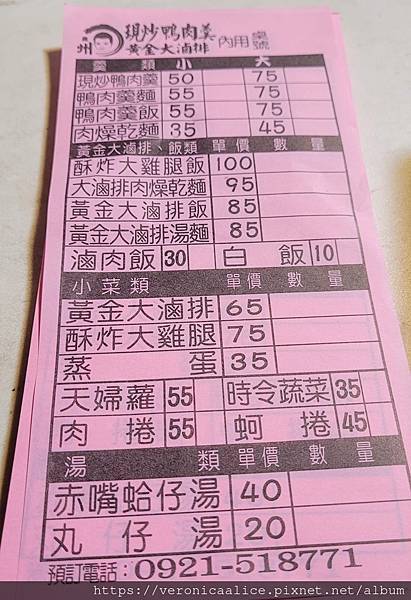 州 現炒鴨肉羹 內用 桌號
黃金大滷排
羹類 小 大
現炒鴨肉羹 50 75
鴨肉羹麵 55 75
鴨肉羹飯 55 75
肉燥乾麵 35 45
黃金大滷排、飯類 單價 數量
酥炸大雞腿飯 100
大滷排肉燥乾麵 95
黃金大滷排飯 85
黃金大滷排湯麵 85
滷肉飯 30 白飯 10
小菜類 單價 數量
黃金大滷排 65
酥炸大雞腿 75
蒸蛋 35
天婦蘿 55 時令蔬菜 35
肉捲 55 蚵捲 45
湯類 單價 數量
赤嘴蛤仔湯 40
丸仔湯 20
預訂電話：0921-518771
https://veronicaalice.pixnet.net/album